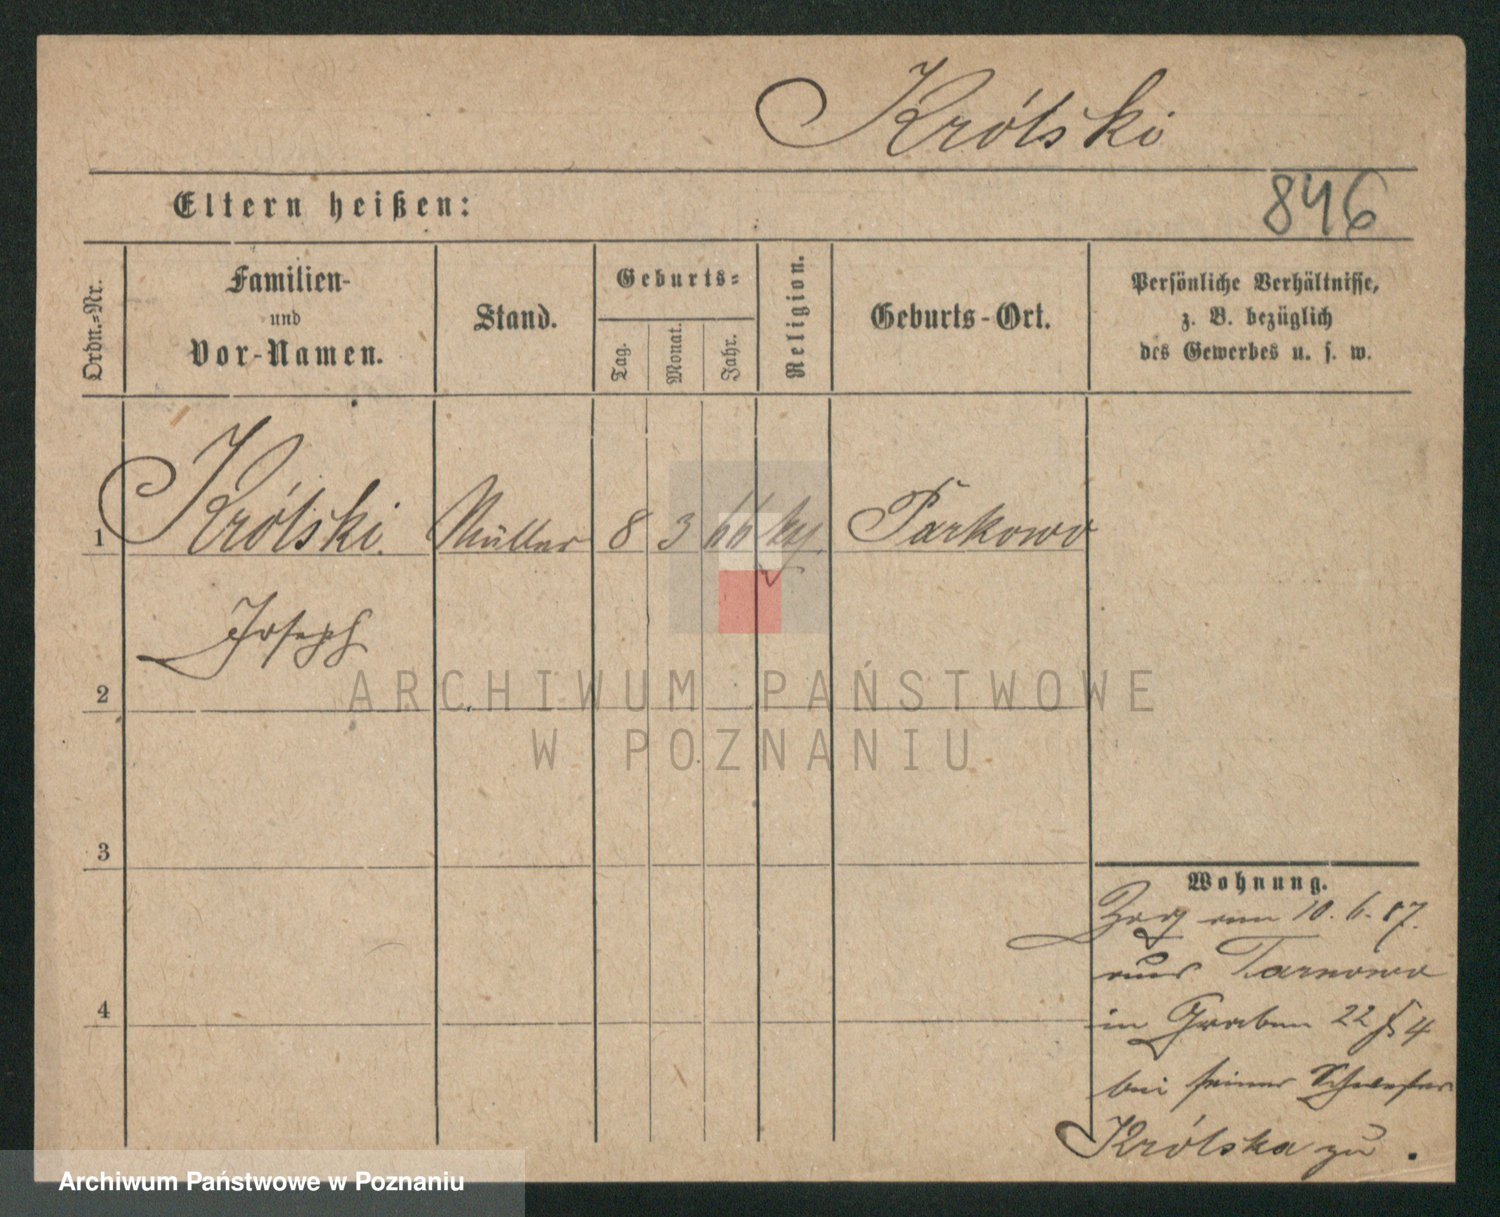 Królski
Eltern heißen:
846
Ordn.-Nr.
Familien-
und
Vor-Namen.
Stand.
Geburts-
Tag.
Monat.
Jahr.
Religion.
Geburts-Ort.
Persönliche Verhältnisse,
z. B. bezüglich
des Gewerbes u. s. w.
1 Królski. Müller 8 3 66 Parkowo
Joseph
2
ARCHIWUM PAŃSTWOWE
W POZNANIU
3
Wohnung.
Zog am 10. 6. 87.
aus Tarnowo
in Graben 22 4
4
bei seiner Schwester
Królska zu.
Archiwum Państwowe w Poznaniu